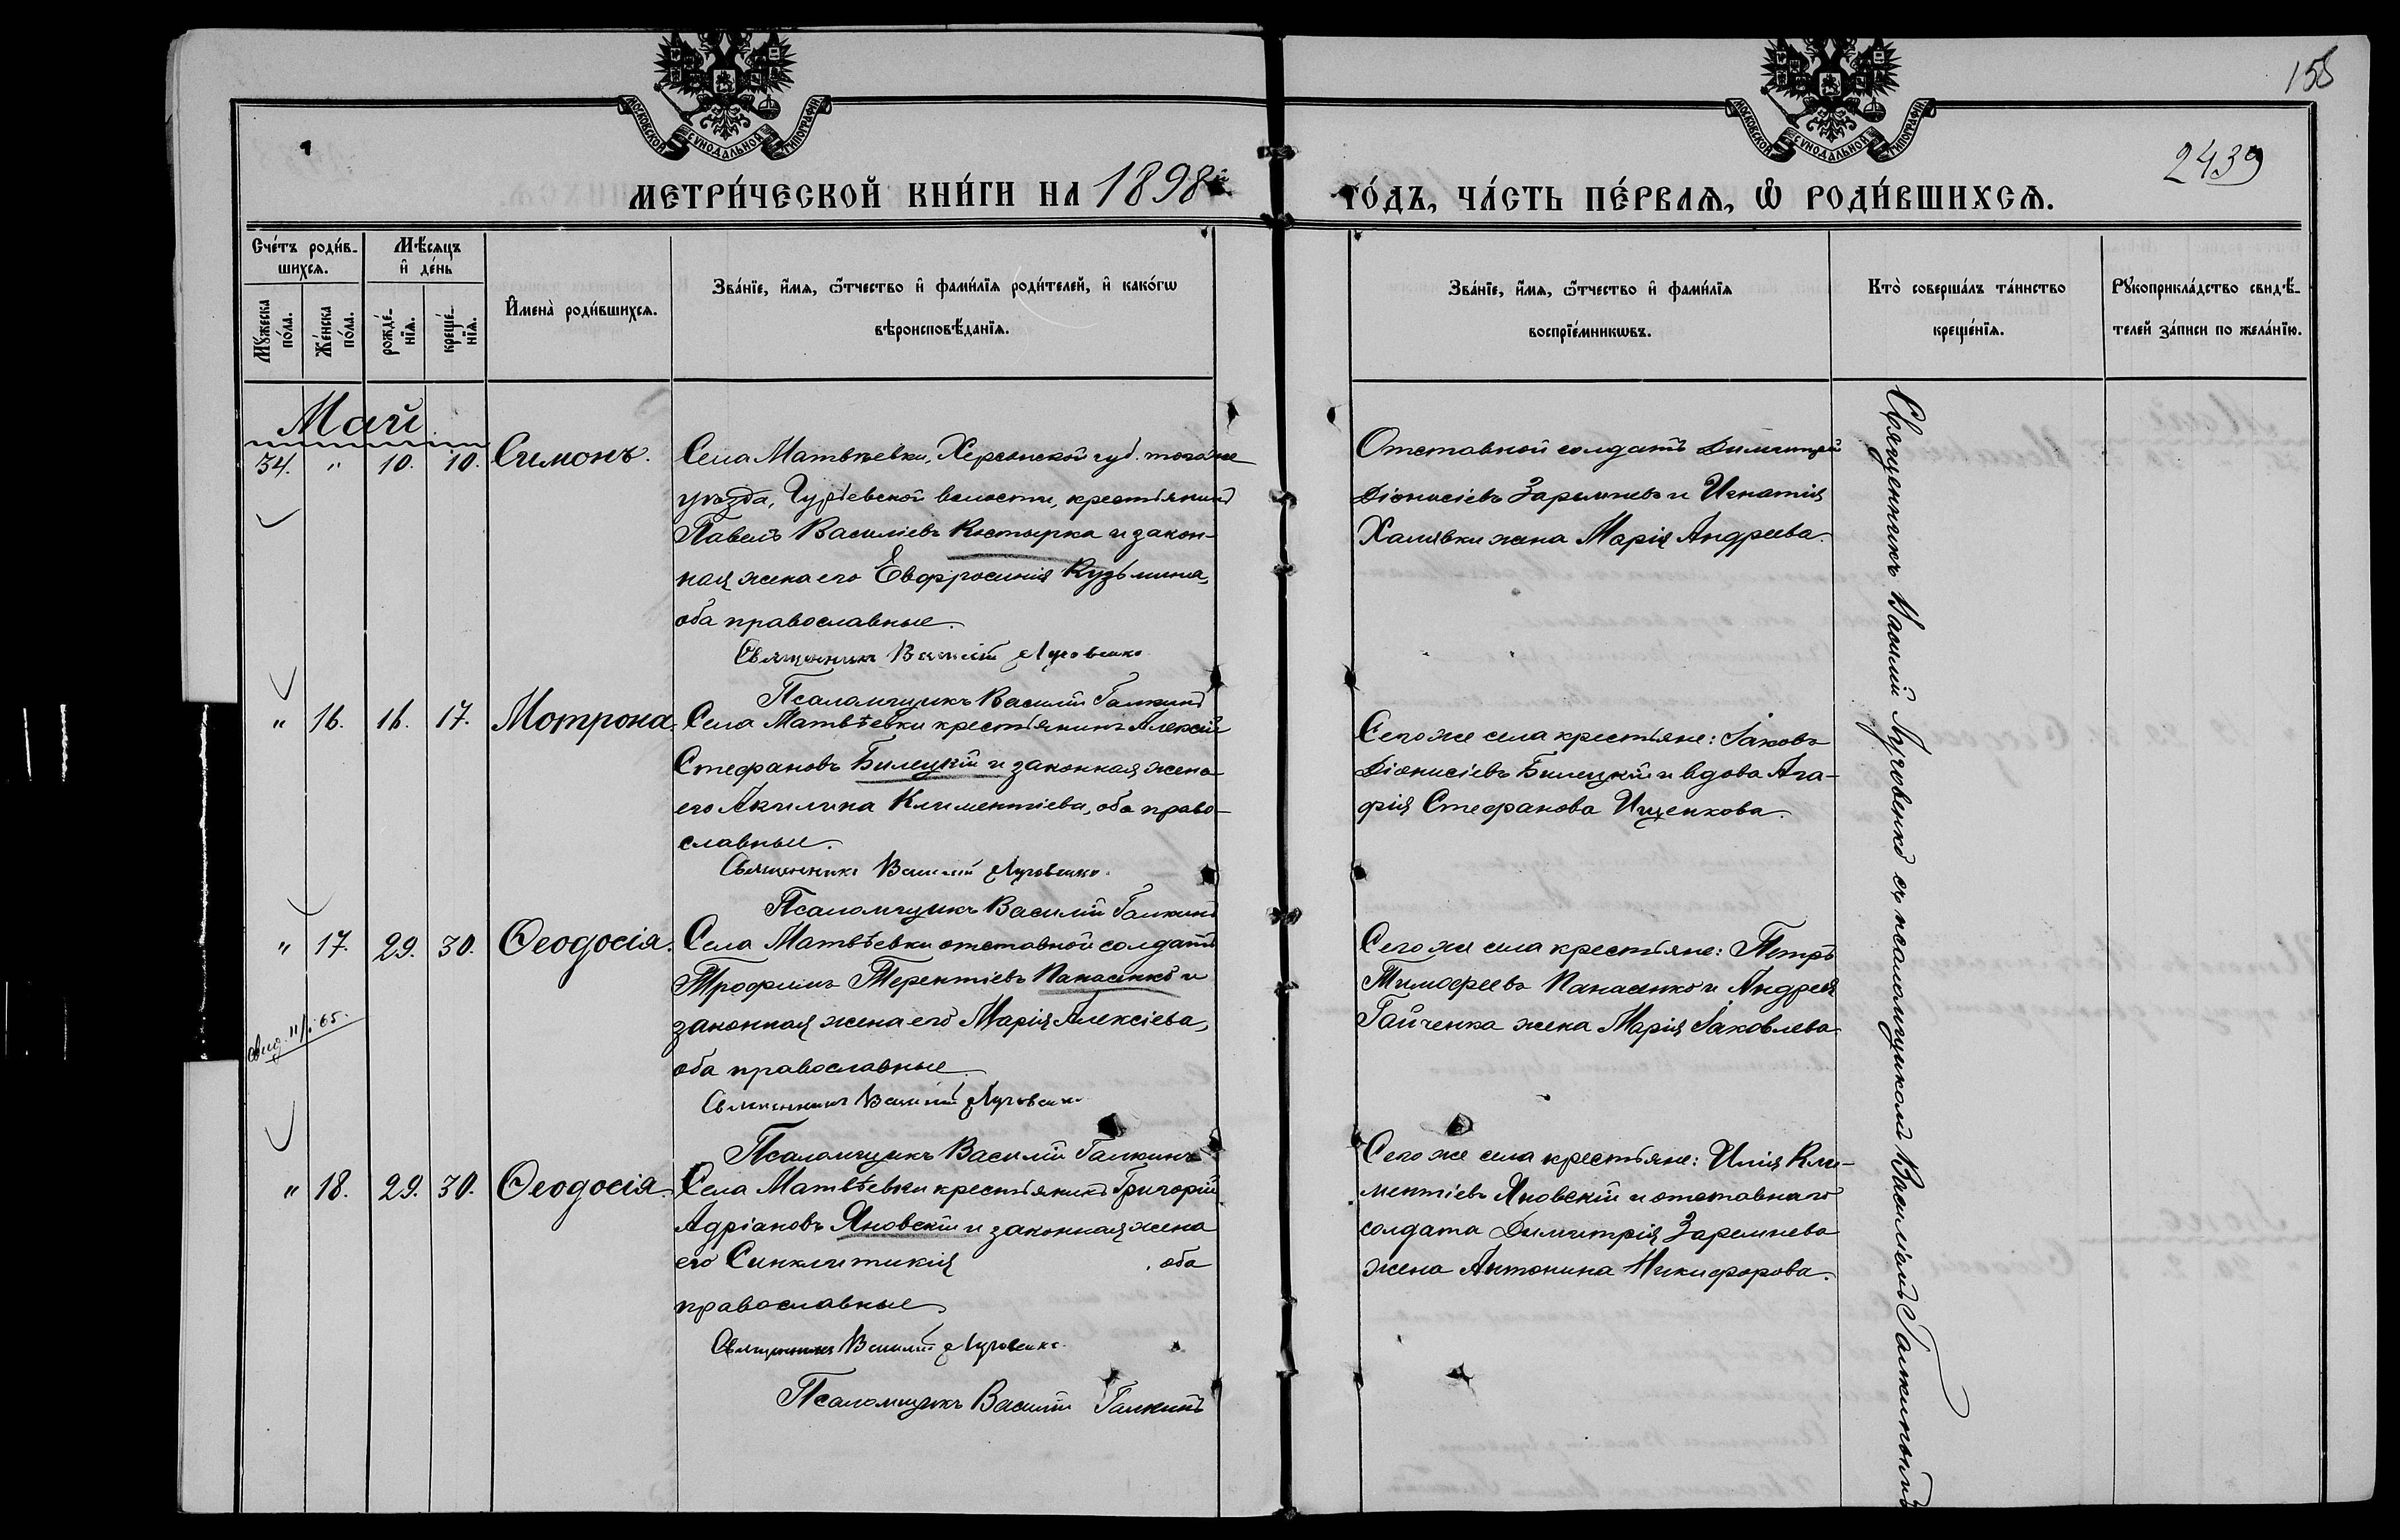 158
2439
МОСКОВСКОЙ СѴНОДАЛЬНОЙ ТИПОГРАФІИ.
МОСКОВСКОЙ СѴНОДАЛЬНОЙ ТИПОГРАФІИ.
МЕТРИ́ЧЕСКОЙ КНИ́ГИ НА 1898й
ГО́ДЪ, ЧА́СТЬ ПЕ́РВАѦ, Ѡ҆ РОДИ́ВШИХСѦ.
Сче́тъ роди́в-
шихсѧ.
Мѣ́сѧцъ
и҆ де́нь
Мꙋ́жеска
по́ла.
Же́нска
по́ла.
рожде́-
нїѧ.
креще́-
нїѧ.
И҆мена̀ роди́вшихсѧ.
Зва́нїе, и҆́мѧ, ѻ҆́тчество и҆ фами́лїѧ роди́телей, и҆ како́гѡ
вѣроисповѣ́данїѧ.
Зва́нїе, и҆́мѧ, ѻ҆́тчество и҆ фами́лїѧ
воспрїе́мникѡвъ.
Кто̀ соверша́лъ та́инство
креще́нїѧ.
Рꙋкоприкла́дство свидѣ́-
телей за́писи по жела́нїю.
Май
34. " 10. 10. Симонъ.
Села Матвѣевки, Херсонской губ. того же
уѣзда, Гурьевской волости, крестьянинъ
Павелъ Василіевъ Костырка и закон-
ная жена его Евфросинія Кузьмина,
оба православные.
Священникъ Василій Луговенко
Псаломщикъ Василій Галкинъ
Отставной солдатъ Димитрій
Діонисіевъ Заремневъ и Игнатія
Халявки жена Марія Андреева.
" 16. 16. 17. Мотрона.
Села Матвѣевки крестьянинъ Алексій
Стефановъ Билецкій и законная жена
его Акилина Климентіева, оба право-
славные.
Священникъ Василій Луговенко.
Псаломщикъ Василій Галкинъ
Сего же села крестьяне: Іаковъ
Діонисіевъ Билецкій и вдова Ага-
фія Стефанова Ищенкова.
" 17. 29. 30. Ѳеодосія.
Села Матвѣевки отставной солдатъ
Трофимъ Терентіевъ Панасенко и
законная жена его Марія Алексіева,
оба православные.
Священникъ Василій Луговенко
Псаломщикъ Василій Галкинъ
Сего же села крестьяне: Петръ
Тимофеевъ Панасенко и Андрея
Гайченка жена Марія Іаковлева
" 18. 29. 30. Ѳеодосія.
Села Матвѣевки крестьянинъ Григорій
Адріановъ Яновскій и законная жена
его Синклитикія оба
православные.
Священникъ Василій Луговенко.
Псаломщикъ Василій Галкинъ
Сего же села крестьяне: Илія Кли-
ментіевъ Яновскій и отставнаго
солдата Димитрія Заремнева
жена Антонина Никифорова.
Священникъ Василій Луговенко съ псаломщикомъ Василіемъ Галкинымъ